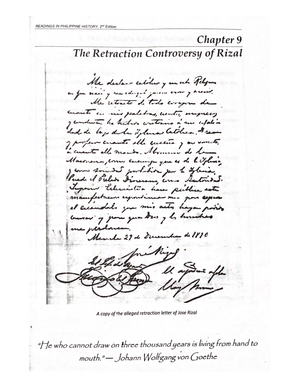 READINGS IN PHILIPPINE HISTORY, 2nd Edition
Chapter 9
The Retraction Controversy of Rizal
Me declaro católico y en esta Religion
en que nací y me eduqué quiero vivir y morir.
Me retracto de todo corazon de
cuanto en mis palabras, escritos, impresos
y conducta ha habido contrario á mi
de la Iglesia Católica. Creo
y profeso cuanto ella enseña y me someto
á cuanto ella manda. Abomino de la
Masoneria, como enemiga que es de la Iglesia,
y como sociedad prohibida por la Iglesia.
Puede el Prelado Diocesano, como Autoridad
Superior Eclesiástica hacer pública esta
manifestacion espontánea mia para reparar
el escándalo que mis actos hayan podido
causar y para que Dios y los hombres
me perdonen.
Manila 29 de Diciembre de 1890
José Rizal
A copy of the alleged retraction letter of Jose Rizal
"He who cannot draw on three thousand years is living from hand to
mouth."— Johann Wolfgang von Goethe